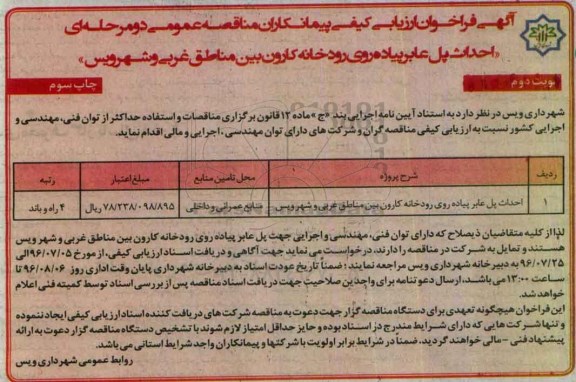 آگهی فراخوان ارزیابی کیفی پیمانکاران مناقصه عمومی دو مرحله ای
« احداث پل عابر پیاده روی رودخانه کارون بین مناطق غربی و شهر ویس »
نوبت دوم
چاپ سوم
شهرداری ویس در نظر دارد به استناد آیین نامه اجرایی بند «ج» ماده ۱۲ قانون برگزاری مناقصات و استفاده حداکثر از توان فنی، مهندسی و
اجرایی کشور نسبت به ارزیابی کیفی مناقصه گران و شرکت های دارای توان مهندسی ، اجرایی و مالی اقدام نماید.
ردیف شرح پروژه محل تامین منابع مبلغ اعتبار رتبه
۱ احداث پل عابر پیاده روی رودخانه کارون بین مناطق غربی و شهر ویس منابع عمرانی و داخلی ۷۸/۲۳۸/۰۹۸/۸۹۵ ریال ۴ راه و باند
لذا از کلیه متقاضیان ذیصلاح که دارای توان فنی، مهندسی و اجرایی جهت پل عابر پیاده روی رودخانه کارون بین مناطق غربی و شهر ویس
هستند و تمایل به شرکت در مناقصه را دارند، درخواست می نماید جهت آگاهی و دریافت اسناد ارزیابی کیفی، از مورخ ۹۶/۰۷/۰۵ الی
۹۶/۰۷/۲۵ به دبیرخانه شهرداری ویس مراجعه نمایند ؛ ضمناً تاریخ عودت اسناد به دبیرخانه شهرداری پایان وقت اداری روز ۹۶/۰۸/۰۶ تا
ساعت ۱۳:۰۰ می باشد، ارسال دعوتنامه برای واجدین صلاحیت جهت دریافت اسناد مناقصه پس از بررسی اسناد توسط کمیته فنی اعلام
خواهد شد.
این فراخوان هیچگونه تعهدی برای دستگاه مناقصه گزار جهت دعوت به مناقصه شرکت های دریافت کننده اسناد ارزیابی کیفی ایجاد ننموده
و تنها شرکت هایی که دارای شرایط مندرج در اسناد بوده و حایز حداقل امتیاز لازم شوند با تشخیص دستگاه مناقصه گزار دعوت به ارائه
پیشنهاد فنی - مالی خواهند گردید، ضمناً در شرایط برابر اولویت با شرکتها و پیمانکاران واجد شرایط استانی می باشد.
روابط عمومی شهرداری ویس